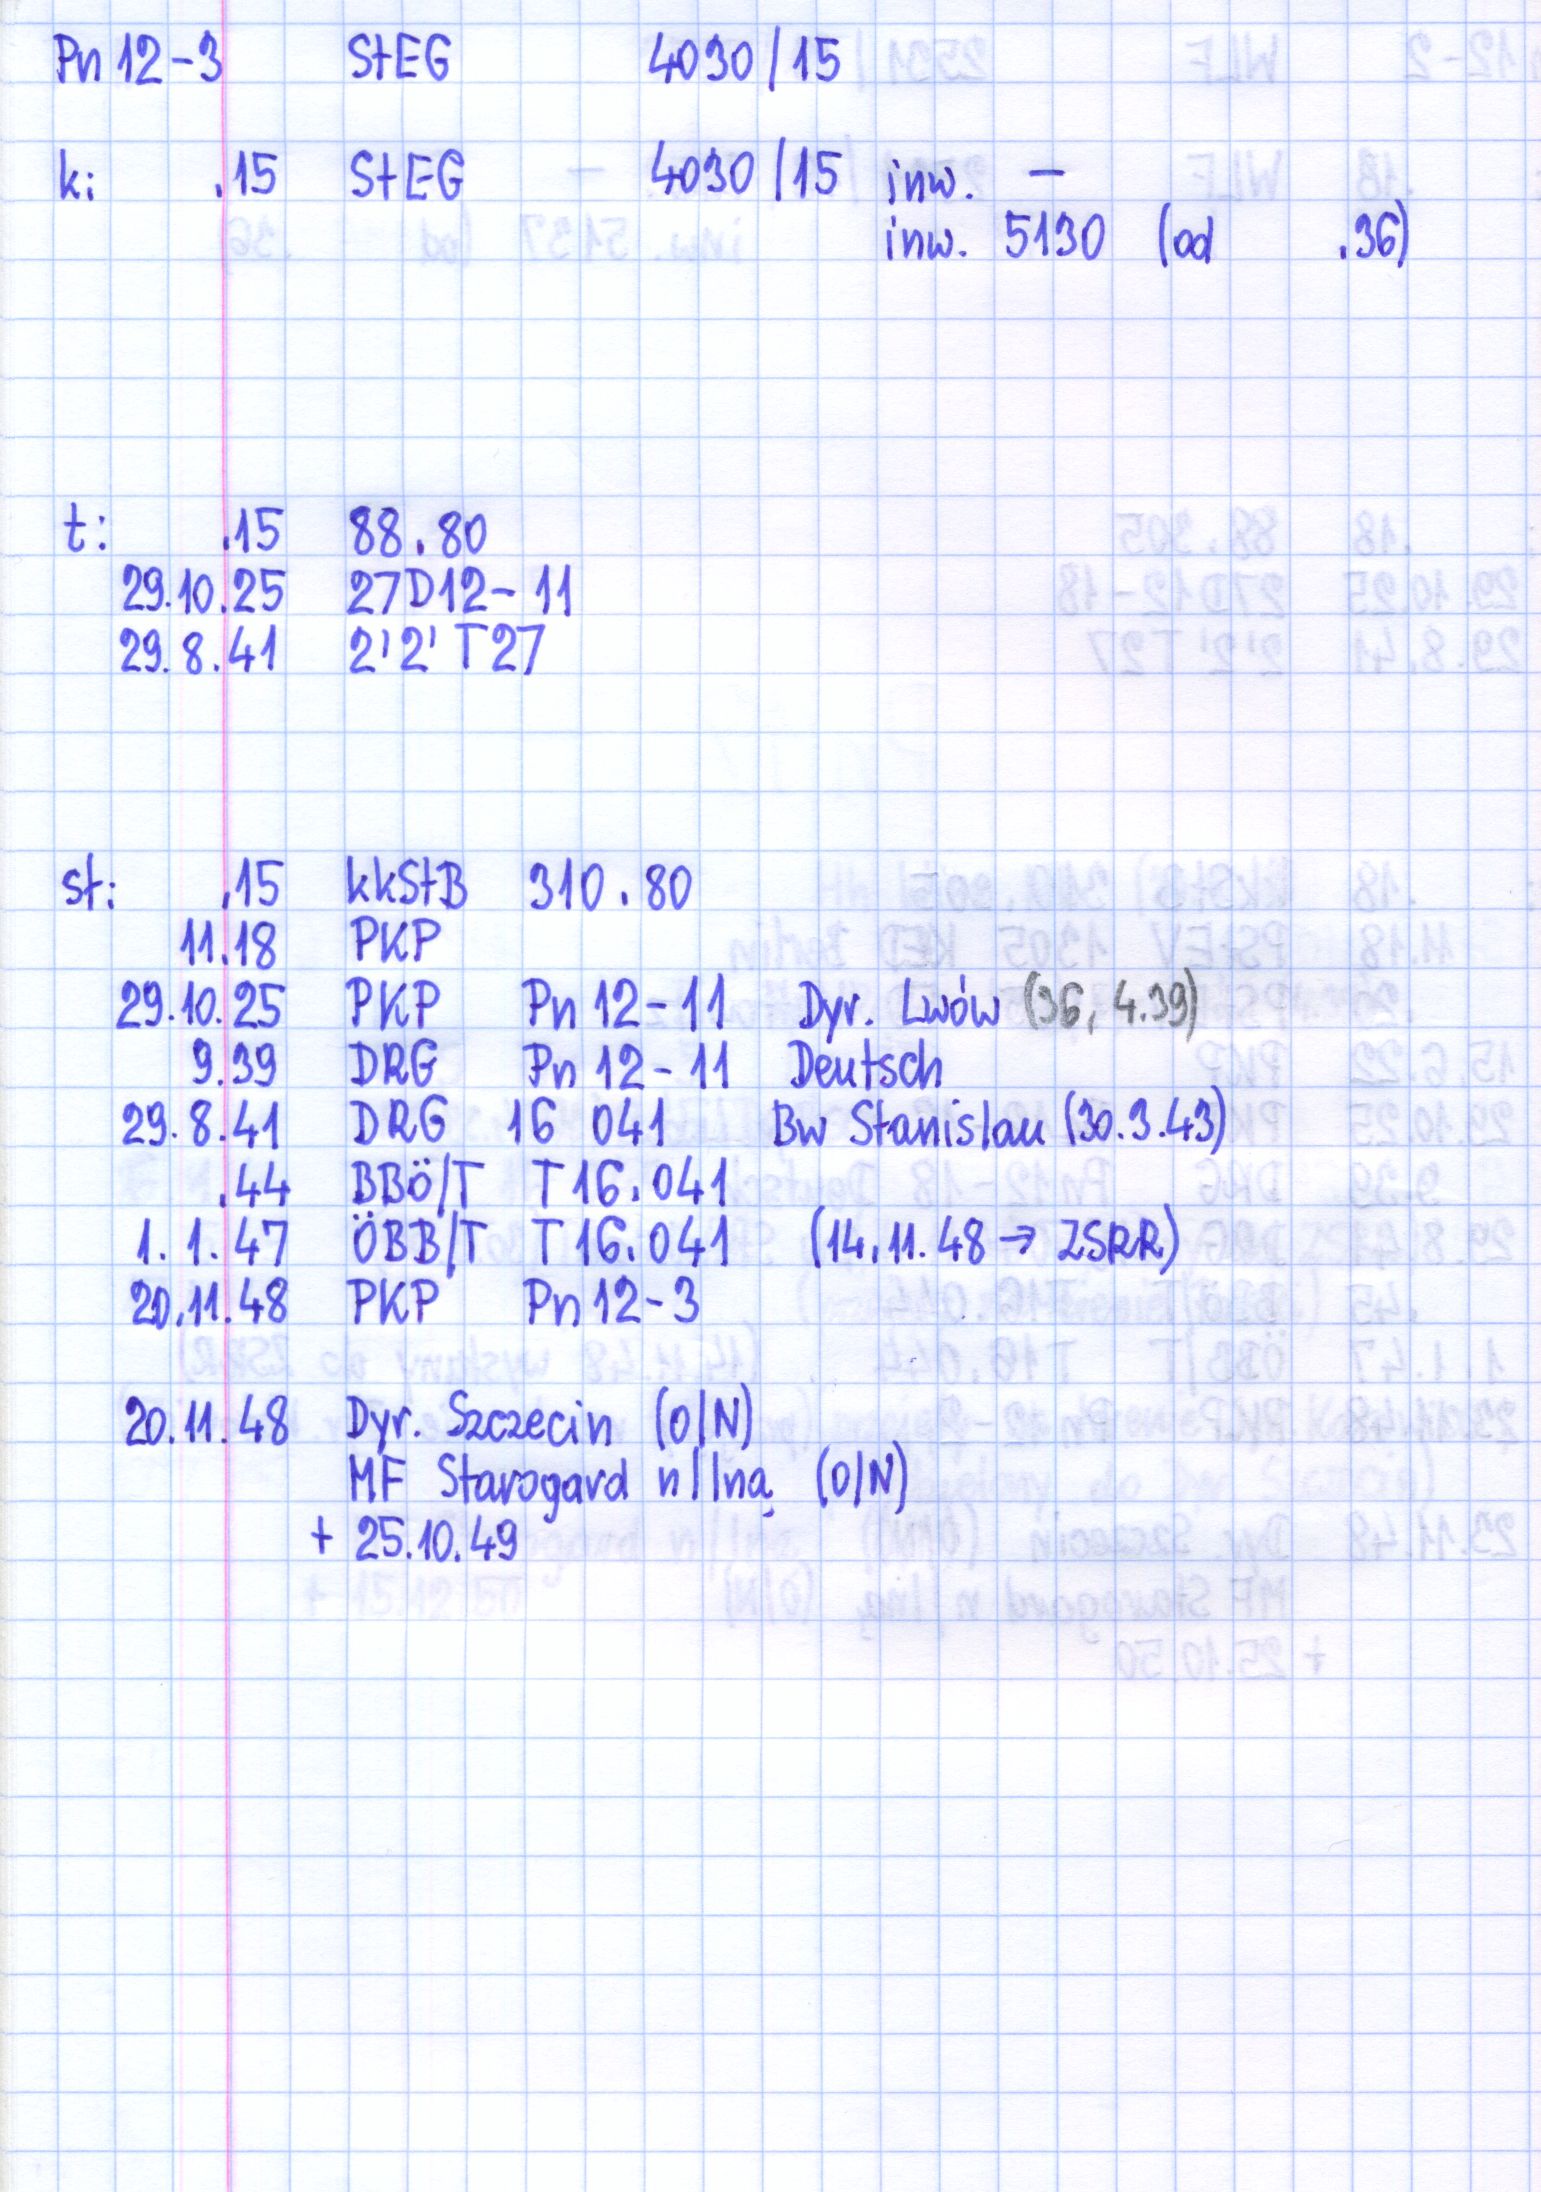 Pn 12-3 StEG 4030/15
k: .15 StEG 4030/15 inw. –
inw. 5130 (od .36)
t: .15 88.80
29.10.25 27D12-11
29.8.41 2'2' T27
st: .15 kkStB 310.80
11.18 PKP
29.10.25 PKP Pn 12-11 Dyr. Lwów (36, 4.39)
9.39 DRG Pn 12-11 Deutsch
29.8.41 DRG 16 041 Bw Stanislau (30.3.43)
.44 BBÖ/T T16.041
1.1.47 ÖBB/T T16.041 (14.11.48 → ZSRR)
20.11.48 PKP Pn12-3
20.11.48 Dyr. Szczecin (O/N)
MF Starogard n/Iną (O/N)
+ 25.10.49